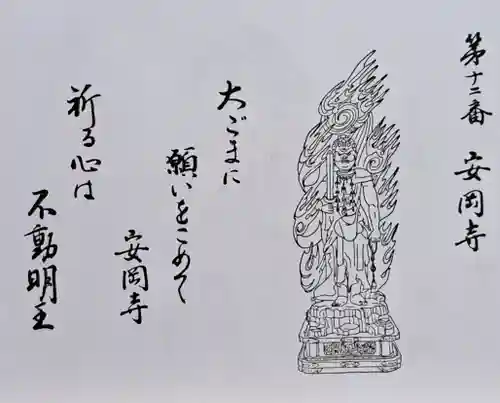 第十二番 安岡寺
大ごまに
願いをこめて
安岡寺
祈る心は
不動明王